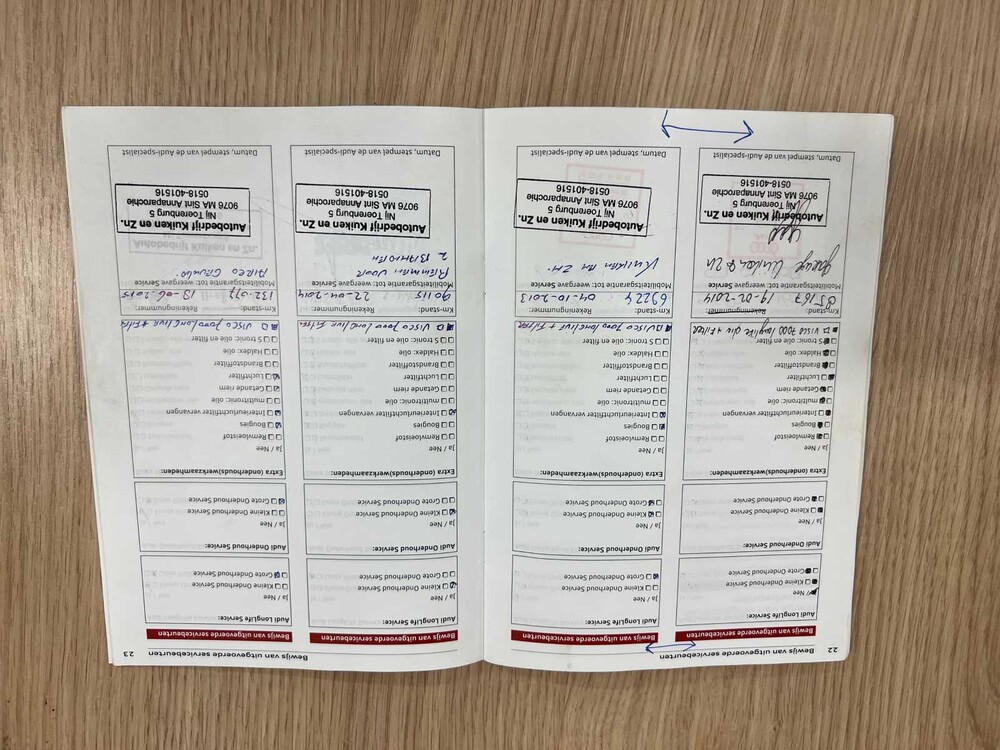 22 Bewijs van uitgevoerde servicebeurten
Bewijs van uitgevoerde servicebeurten
Audi LongLife Service:
Ja / Nee
Kleine Onderhoud Service
Grote Onderhoud Service
Audi Onderhoud Service:
Ja / Nee
Kleine Onderhoud Service
Grote Onderhoud Service
Extra (onderhouds)werkzaamheden:
Ja / Nee
Remvloeistof
Bougies
Interieurluchtfilter vervangen
multitronic: olie
Getande riem
Luchtfilter
Brandstoffilter
Haldex: olie
S tronic: olie en filter
Visco 7000 longlife olie + Filter
Km-stand: Rekeningnummer:
85167 19-02-2014
Mobiliteitsgarantie tot: weergave Service
Autobedrijf Kuiken en Zn.
Nij Toerenburg 5
9076 MA Sint Annaparochie
0518-401516
Datum, stempel van de Audi-specialist
Bewijs van uitgevoerde servicebeurten
Audi LongLife Service:
Ja / Nee
Kleine Onderhoud Service
Grote Onderhoud Service
Audi Onderhoud Service:
Ja / Nee
Kleine Onderhoud Service
Grote Onderhoud Service
Extra (onderhouds)werkzaamheden:
Ja / Nee
Remvloeistof
Bougies
Interieurluchtfilter vervangen
multitronic: olie
Getande riem
Luchtfilter
Brandstoffilter
Haldex: olie
S tronic: olie en filter
Visco 7000 longlive + Filter
Km-stand: Rekeningnummer:
69224 04-10-2013
Mobiliteitsgarantie tot: weergave Service
Kuiken en Zn.
Autobedrijf Kuiken en Zn.
Nij Toerenburg 5
9076 MA Sint Annaparochie
0518-401516
Datum, stempel van de Audi-specialist
Bewijs van uitgevoerde servicebeurten 23
Bewijs van uitgevoerde servicebeurten
Audi LongLife Service:
Ja / Nee
Kleine Onderhoud Service
Grote Onderhoud Service
Audi Onderhoud Service:
Ja / Nee
Kleine Onderhoud Service
Grote Onderhoud Service
Extra (onderhouds)werkzaamheden:
Ja / Nee
Remvloeistof
Bougies
Interieurluchtfilter vervangen
multitronic: olie
Getande riem
Luchtfilter
Brandstoffilter
Haldex: olie
S tronic: olie en filter
Visco 7000 longlive Filter
Km-stand: Rekeningnummer:
90115 22-04-2014
Mobiliteitsgarantie tot: weergave Service
Remmen voor
2
Autobedrijf Kuiken en Zn.
Nij Toerenburg 5
9076 MA Sint Annaparochie
0518-401516
Datum, stempel van de Audi-specialist
Bewijs van uitgevoerde servicebeurten
Audi LongLife Service:
Ja / Nee
Kleine Onderhoud Service
Grote Onderhoud Service
Audi Onderhoud Service:
Ja / Nee
Kleine Onderhoud Service
Grote Onderhoud Service
Extra (onderhouds)werkzaamheden:
Ja / Nee
Remvloeistof
Bougies
Interieurluchtfilter vervangen
multitronic: olie
Getande riem
Luchtfilter
Brandstoffilter
Haldex: olie
S tronic: olie en filter
Visco 7000 longlive + Filter
Km-stand: Rekeningnummer:
132-077 18-06-2015
Mobiliteitsgarantie tot: weergave Service
Airco
Autobedrijf Kuiken en Zn.
Nij Toerenburg 5
9076 MA Sint Annaparochie
0518-401516
Datum, stempel van de Audi-specialist